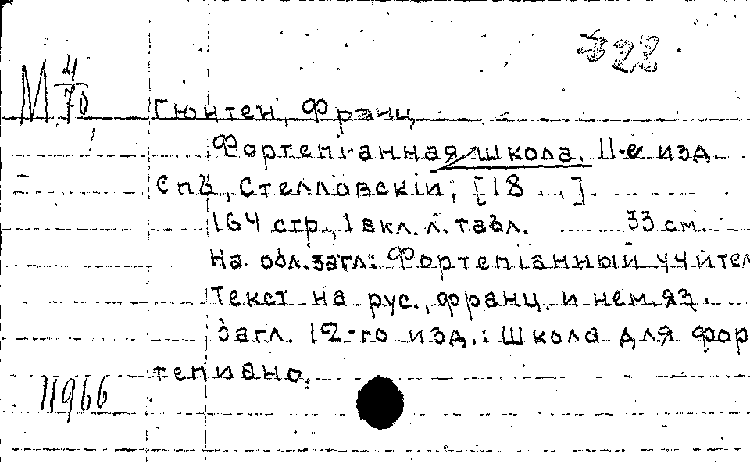 322
М 4/70
Гюнтен, Франц
Фортепіанная школа. 11-е изд.
Спб, Стелловскій, [18 ...]
164 стр., 1 вкл. л. табл. 33 см.
На обл. загл.: Фортепіанный учител
Текст на рус., франц. и нем. яз.
Загл. 12-го изд.: Школа для фор
тепиано.
11966